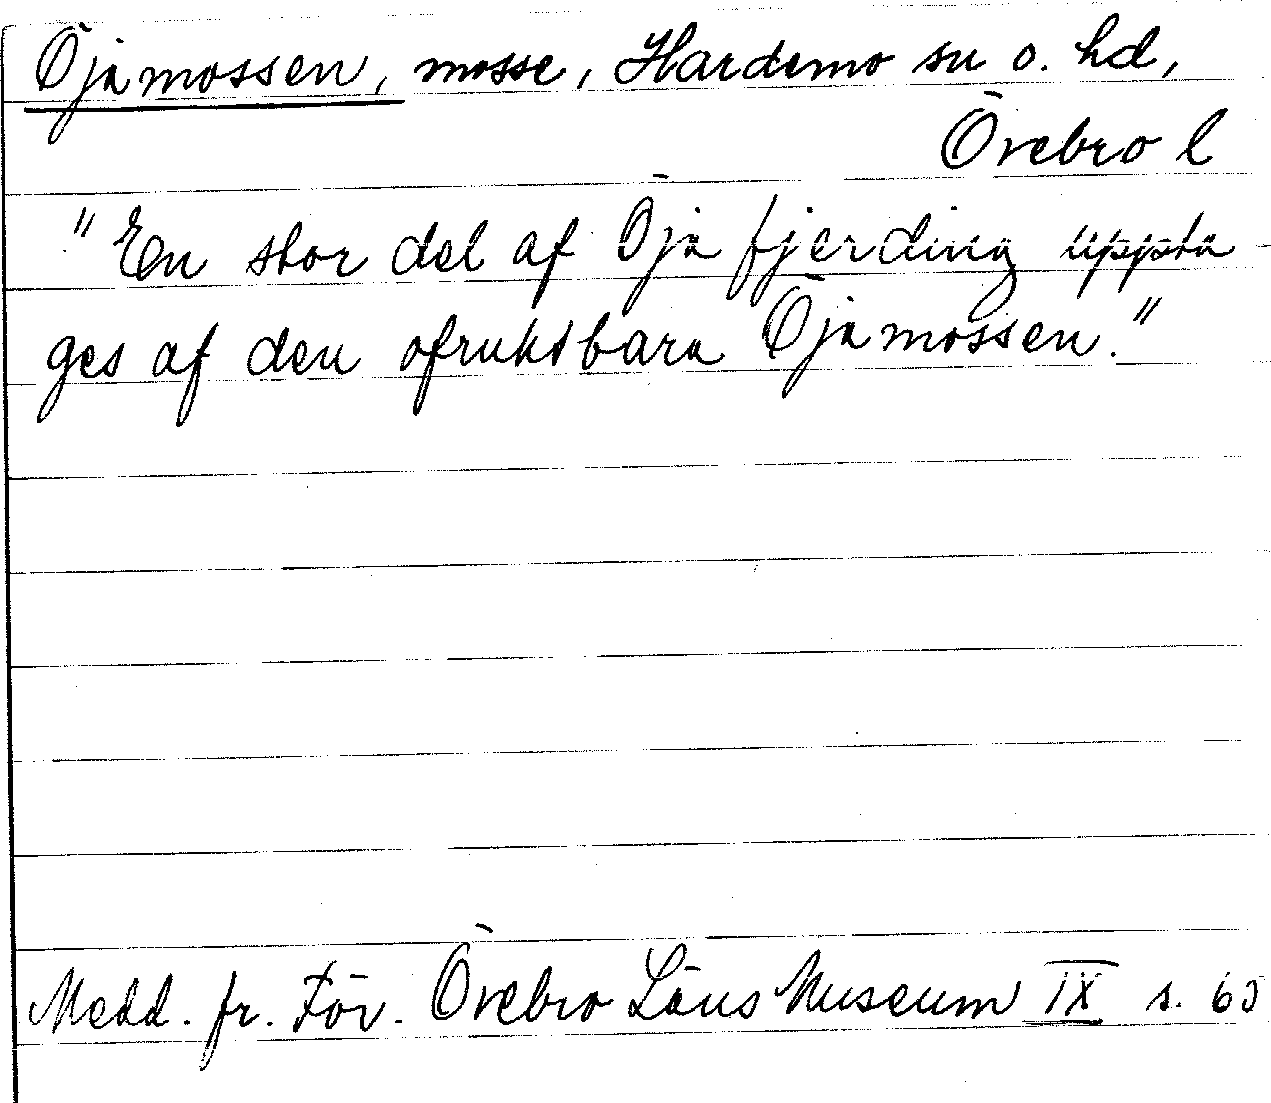 Öjamossen, mosse, Hardemo sn o. hd,
Örebro l
"En stor del af Öja fjerding uppta
ges af den ofruktbara Öjamossen."
Medd. fr. För. Örebro Läns Museum IX s. 65